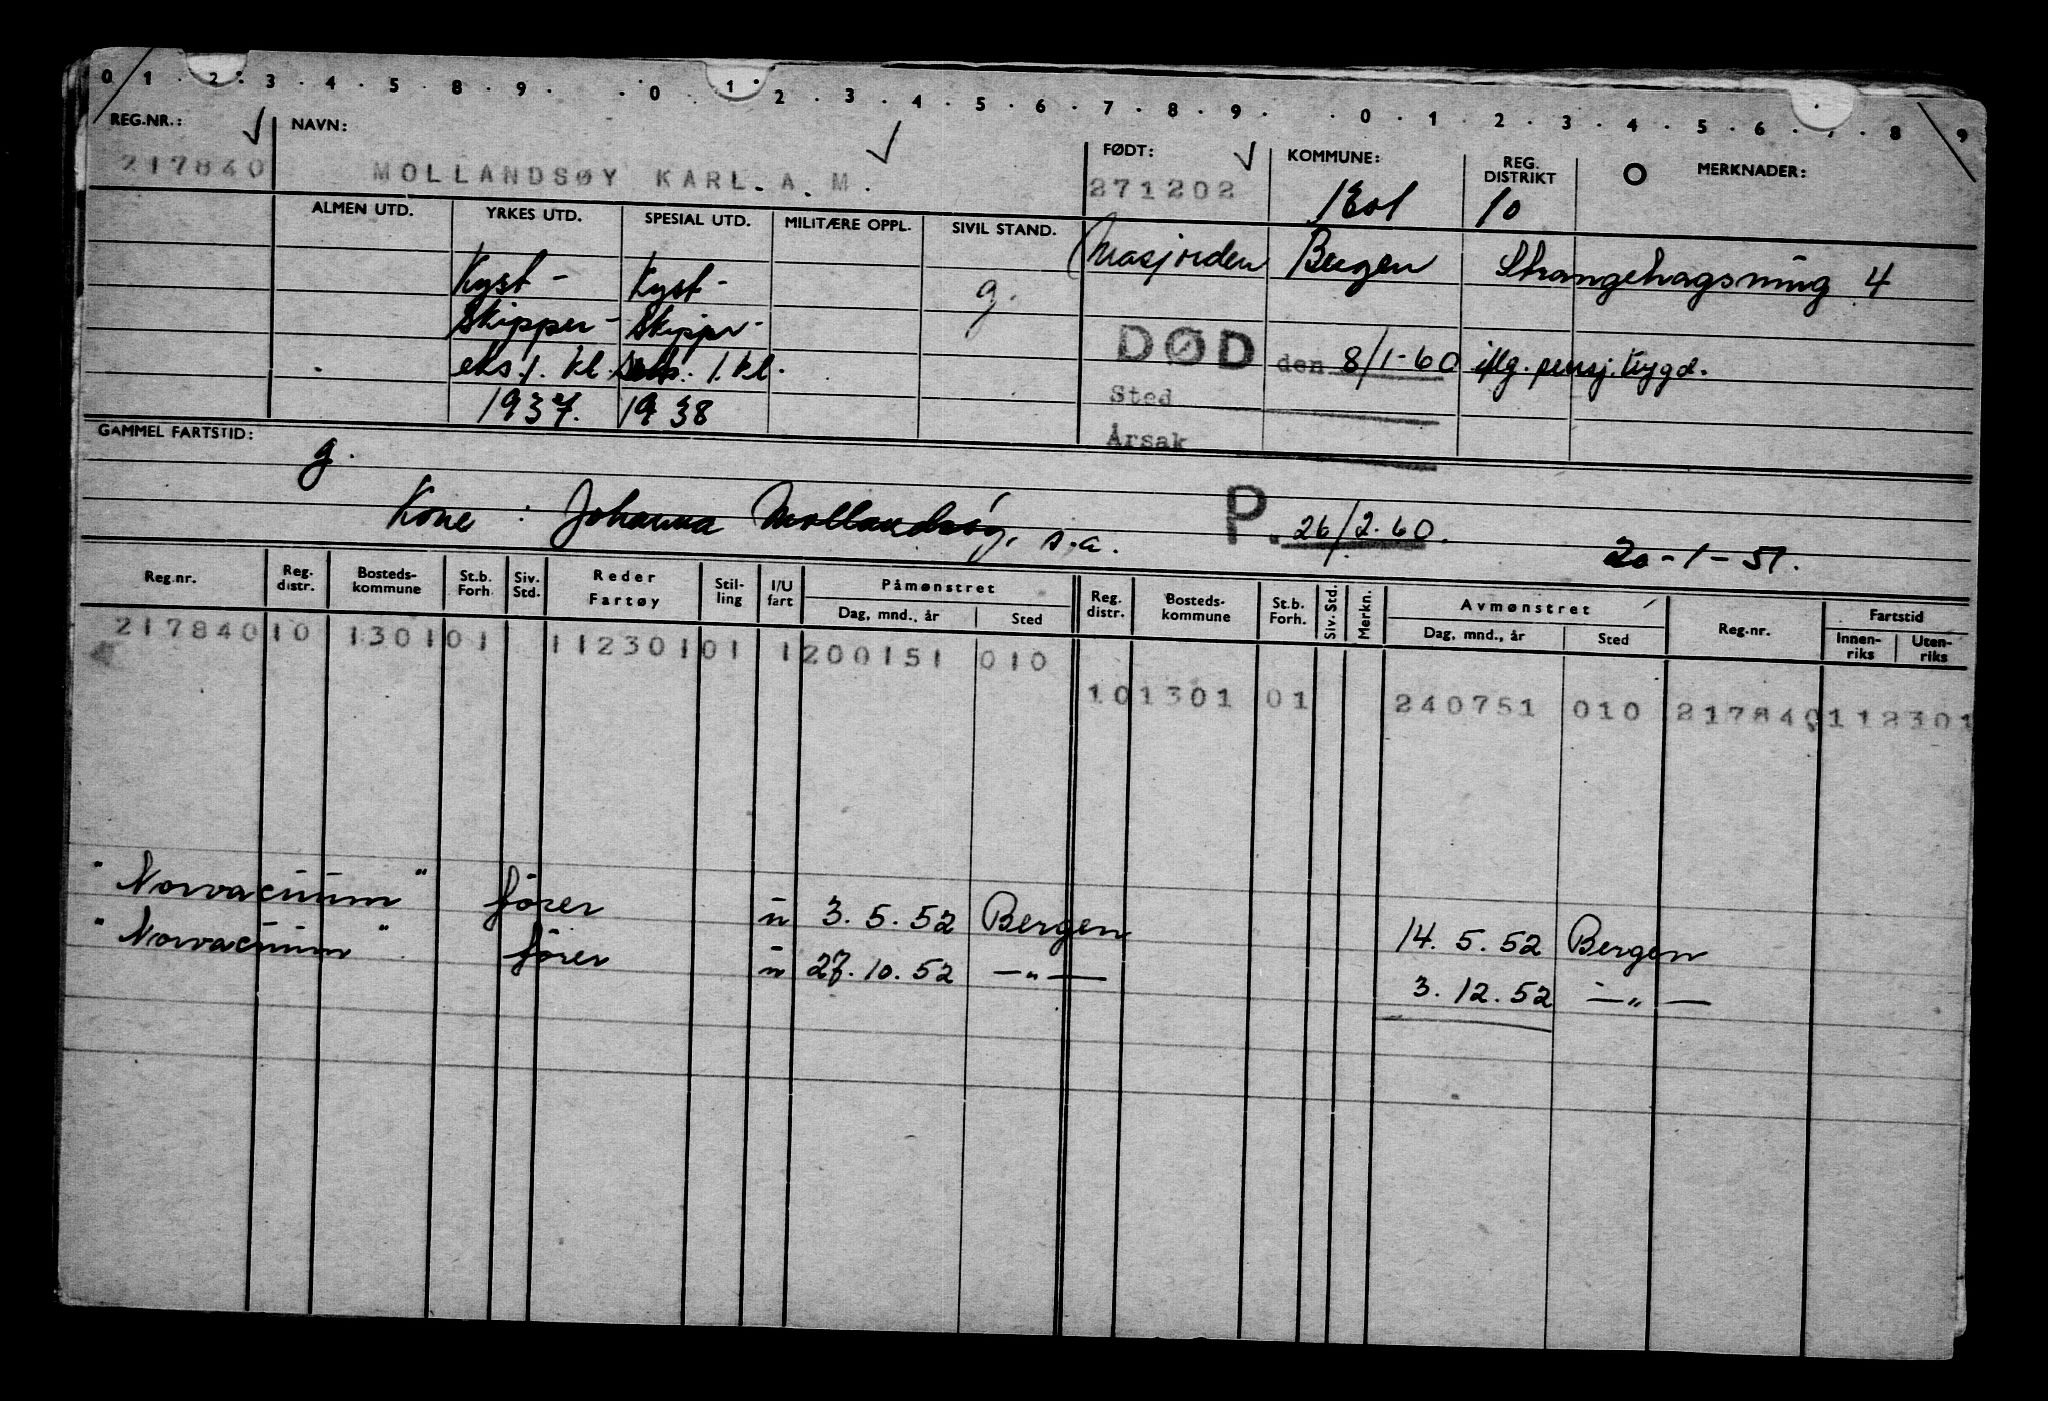 0 1 . 2 . 3 . 4 . 5 . 8 . 9 . . 0 . 1 . 2 . 3 . 4 . 5 . 6 . 7 . 8 . 9 . . 0 . 1 . 2 . 3 . 4 . 5 . 6 . 7 . 8 9
REG.NR.: NAVN: FØDT: KOMMUNE: REG. DISTRIKT MERKNADER:
217840 MOLLANDSØY KARL. A. M. 271202 1301 10
ALMEN UTD. YRKES UTD. SPESIAL UTD. MILITÆRE OPPL. SIVIL STAND.
Bergen Strangehagsmug 4
Kyst- Kyst- g.
skipper- skipper-
eks. 1. kl. 1. kl.
1937. 1938
DØD den 8/1-60 iflg. pensj. trygd.
Sted
Årsak
GAMMEL FARTSTID:
g.
Kone : Johanna Mollandsøy, s.a. P. 26/2.60. 20-1-51.
Reg.nr. Reg. distr. Bosteds- kommune St.b. Forh. Siv. Std. Reder Fartøy Stil- ling I/U fart Påmønstret Dag, mnd., år Sted Reg. distr. Bosteds- kommune St.b. Forh. Siv. Std. Merkn. Avmønstret Dag, mnd., år Sted Reg.nr. Fartstid Innen- riks Uten- riks
217840 10 1301 01 112301 01 1 200151 010
10 1301 01 240751 010 217840 112301
"Norvacuum" fører u 3.5.52 Bergen 14.5.52 Bergen
"Norvacuum" fører u 27.10.52 —"— 3.12.52 —"—